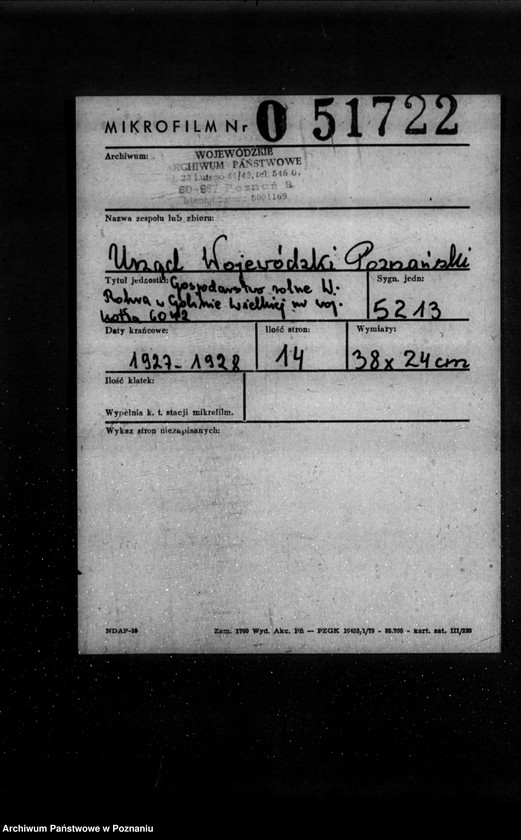 MIKROFILM Nr 0 51722
Archiwum:
WOJEWÓDZKIE
ARCHIWUM PAŃSTWOWE
23 Lutego 41/43, tel. 546 0.
60-967 Poznań 9.
0001169
Nazwa zespołu lub zbioru:
Urząd Wojewódzki Poznański
Tytuł jednostki: Gospodarstwo rolne W.
w Golinie Wielkiej nr woj.
6042
Sygn. jedn:
5213
Daty krańcowe:
1927-1928
Ilość stron:
14
Wymiary:
38x24cm
Ilość klatek:
Wypełnia k. t. stacji mikrofilm.
Wykaz stron niezapisanych:
NDAP-10
Zam. 1700 Wyd. Akc. Pń — PZGK
kart. sat. III/220
Archiwum Państwowe w Poznaniu